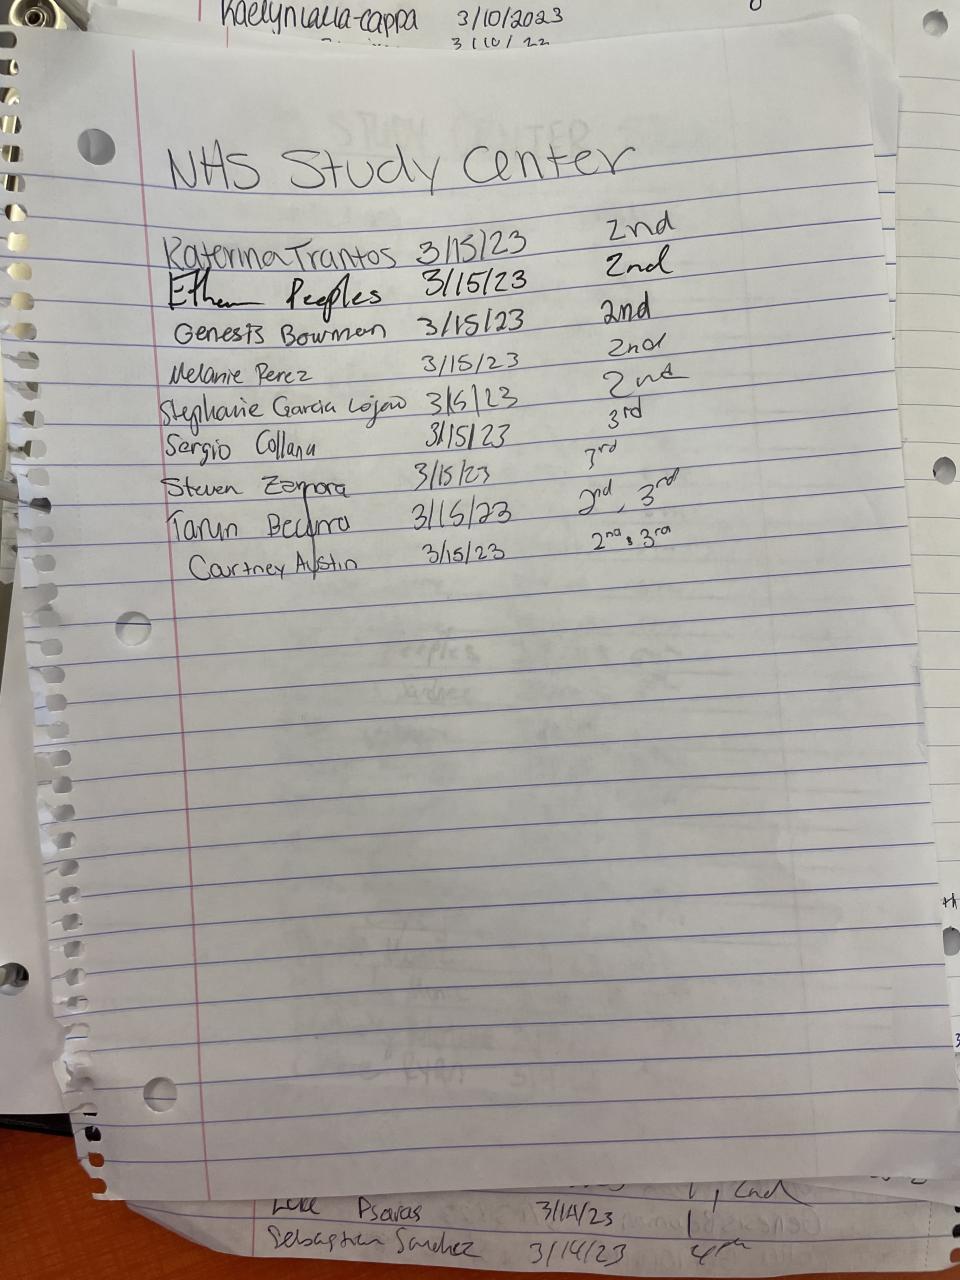 3/10/2023
NHS Study Center
Katerina Trantos 3/15/23 2nd
Ethan Peeples 3/15/23 2nd
Genesis Bowman 3/15/23 2nd
Melanie Perez 3/15/23 2nd
Stephanie Garcia Lojano 3/15/23 2nd
Sergio Collana 3/15/23 3rd
Steven Zamora 3/15/23 3rd
Tarun 3/15/23 2nd, 3rd
Courtney Austin 3/15/23 2nd, 3rd
2nd
Luke Psaras 3/14/23 1
Sebastian Sanchez 3/14/23 4th